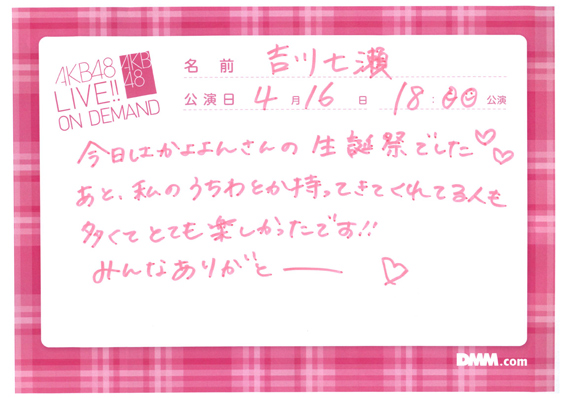 AKB48
LIVE!!
ON DEMAND
AKB
48
名前 吉川七瀬
公演日 4月16日 18:00公演
今日はかよよんさんの生誕祭でした♡♡
あと、私のうちわとか持ってきてくれてる人も
多くてとても楽しかったです!!
みんなありがとー ♡
DMM.com